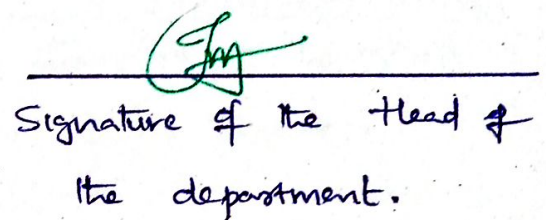 Signature of the Head of
the department.